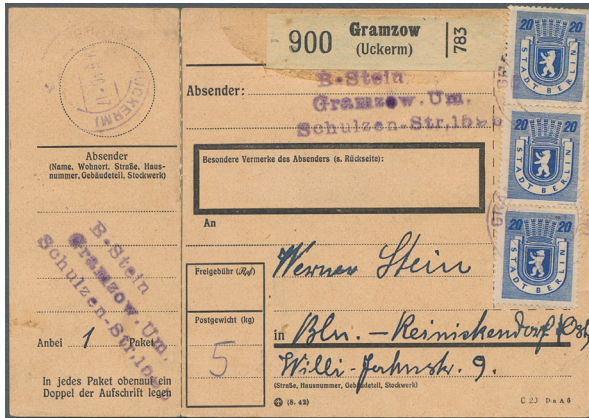 (UCKERM)
Absender
(Name, Wohnort, Straße, Haus-
nummer, Gebäudeteil, Stockwerk)
B. Stein
Gramzow. Um.
Schulzen-Str.
Anbei 1 Paket
In jedes Paket obenauf ein
Doppel der Aufschrift legen
900 Gramzow
(Uckerm)
783
Absender:
B. Stein
Gramzow. Um.
Schulzen-Str.
Besondere Vermerke des Absenders (s. Rückseite):
An
Werner Stein
Freigebühr (Rpf)
Postgewicht (kg)
5
in Bln. – Reinickendorf (Ost)
Willi-Jahnstr. 9.
(Straße, Hausnummer, Gebäudeteil, Stockwerk)
(8. 42)
C 23 Din A 6
20 20
STADT BERLIN
20 20
STADT BERLIN
20 20
STADT BERLIN